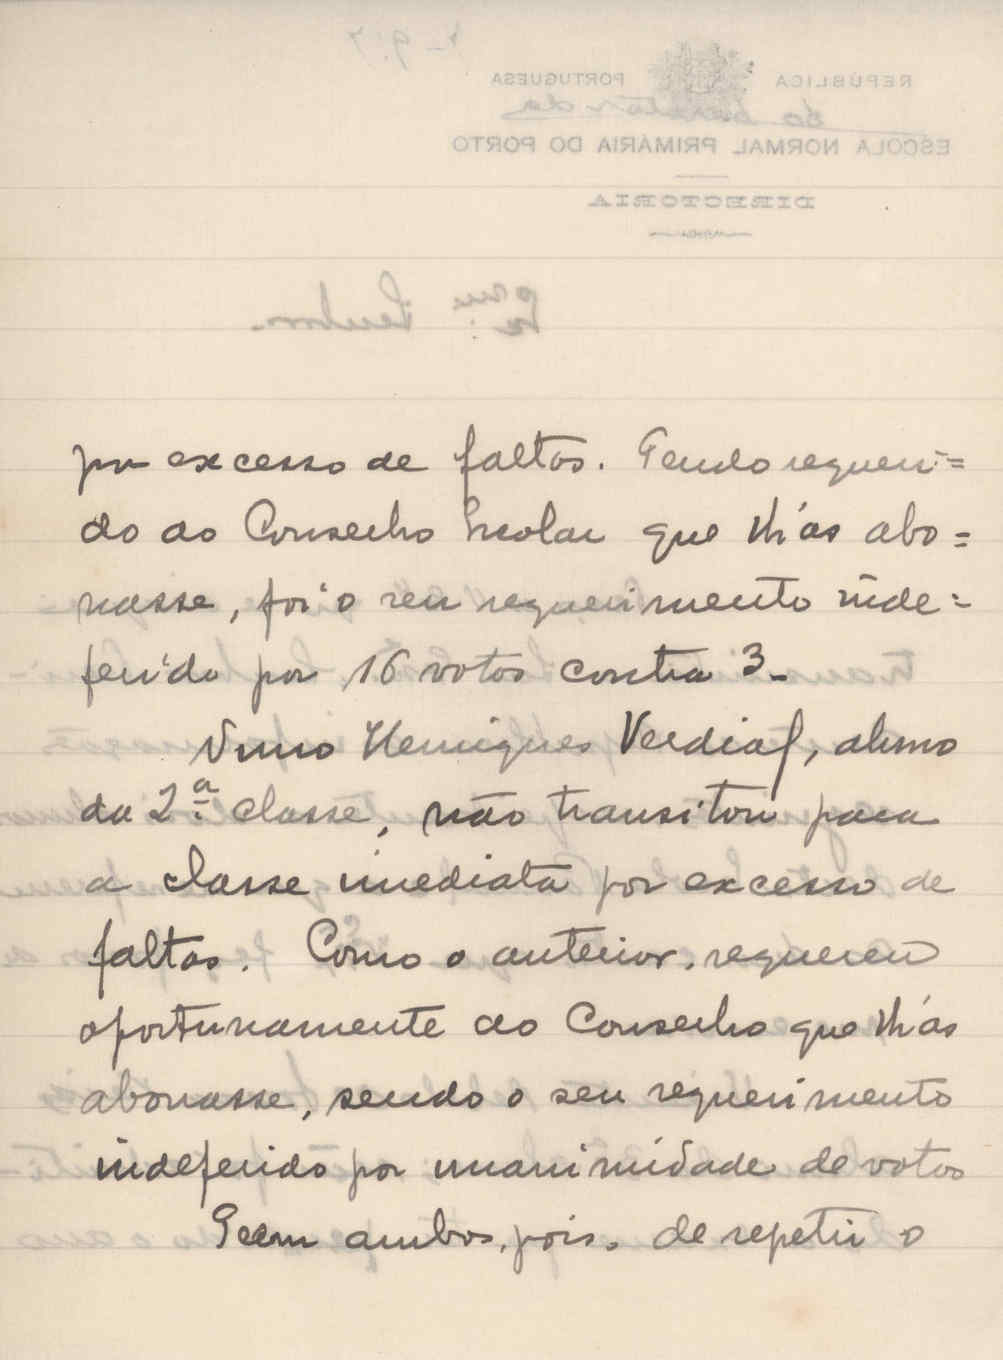 por excesso de faltas. Tendo requeri=
do ao Conselho Escolar que lh'as abo=
nasse, foi o seu requerimento inde=
ferido por 16 votos contra 3.
Nuno Henriques Verdial, aluno
da 2.ª classe, não transitou para
a classe imediata por excesso de
faltas. Como o anterior, requereu
oportunamente ao Conselho que lh'as
abonasse, sendo o seu requerimento
indeferido por unanimidade de votos
Teem ambos, pois, de repetir o